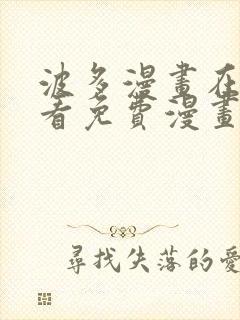 波多漫畫在
看免費漫畫
尋找失落的愛